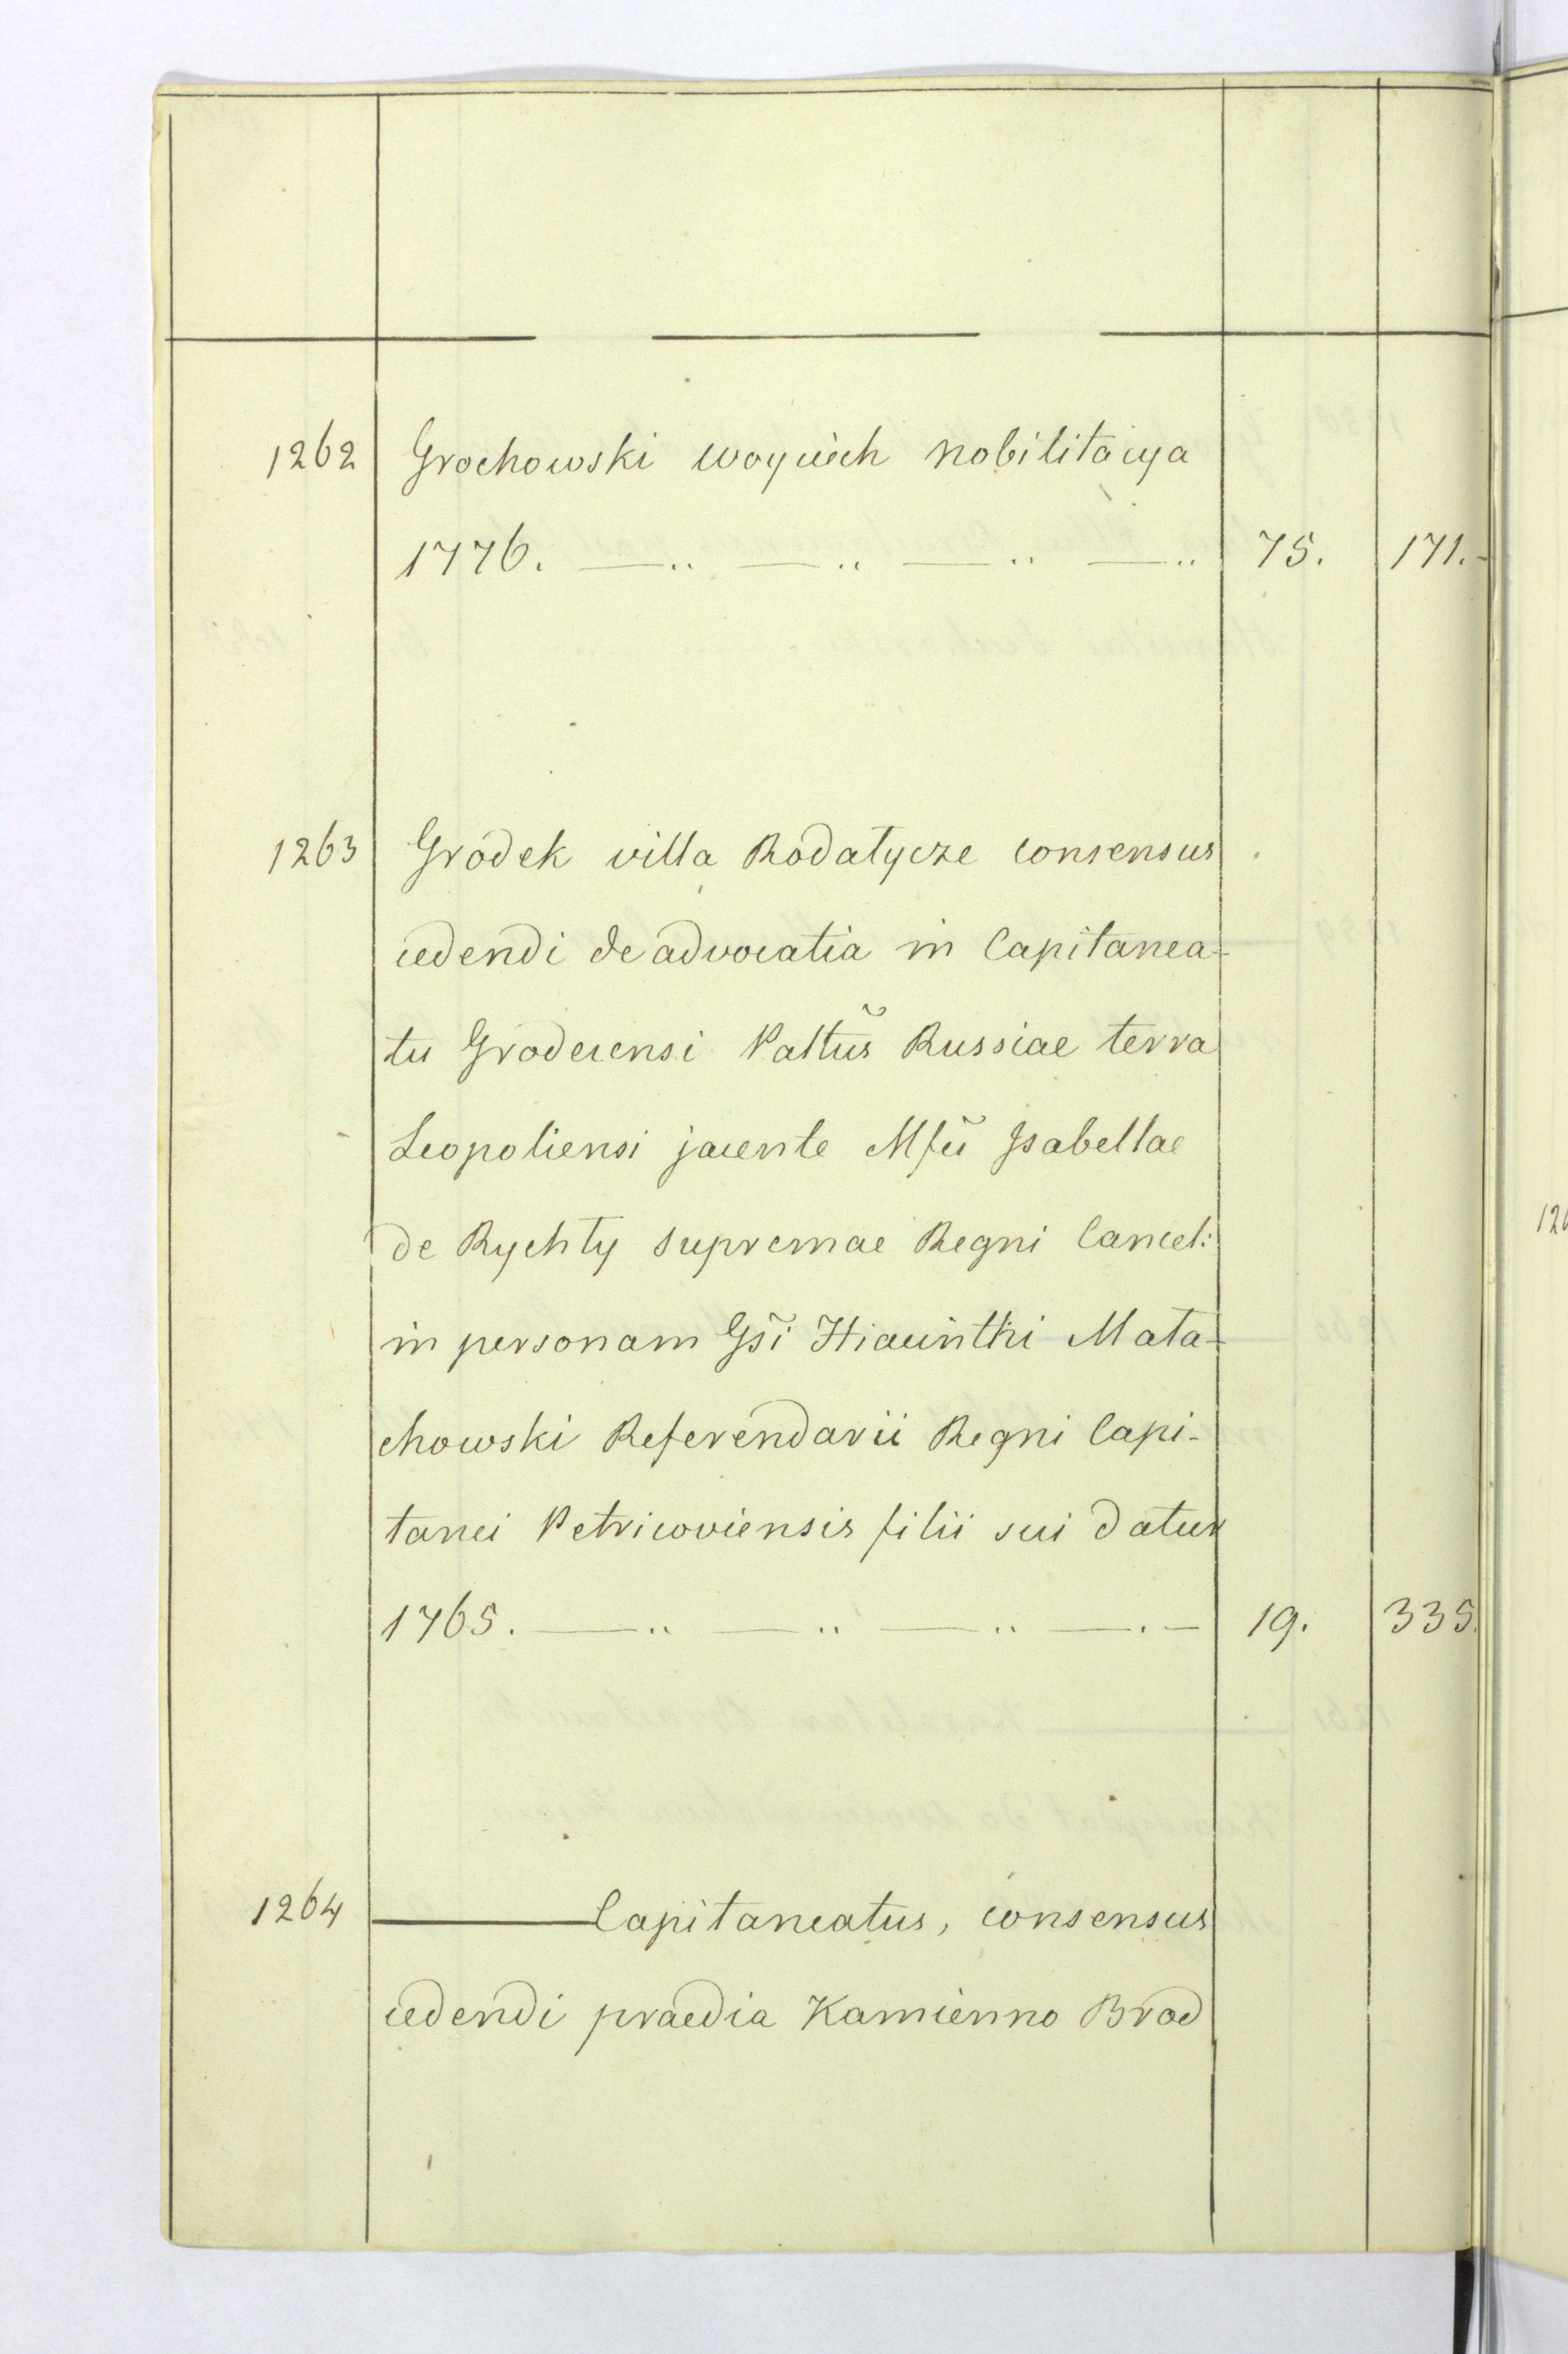 1262 Grochowski Woyciech nobilitacya
1776. —.. —.. —.. —.. 75. 171.-
1263 Grodek villa Rodatycze consensus
cedendi de advocatia in Capitanea-
tu Grodecensi Paltus Russiae terra
Leopoliensi jacente Mfcũ Isabellae
de Rychty supremae Regni Cancel:
in personam Gsĩ Hiacinthi Mała-
chowski Referendarii Regni Capi-
tanei Petricoviensis filii sui datur
1765. —.. —.. —.. —.— 19. 335.
1264 ——— Capitaneatus, consensus
cedendi praedia Kamienno Brod